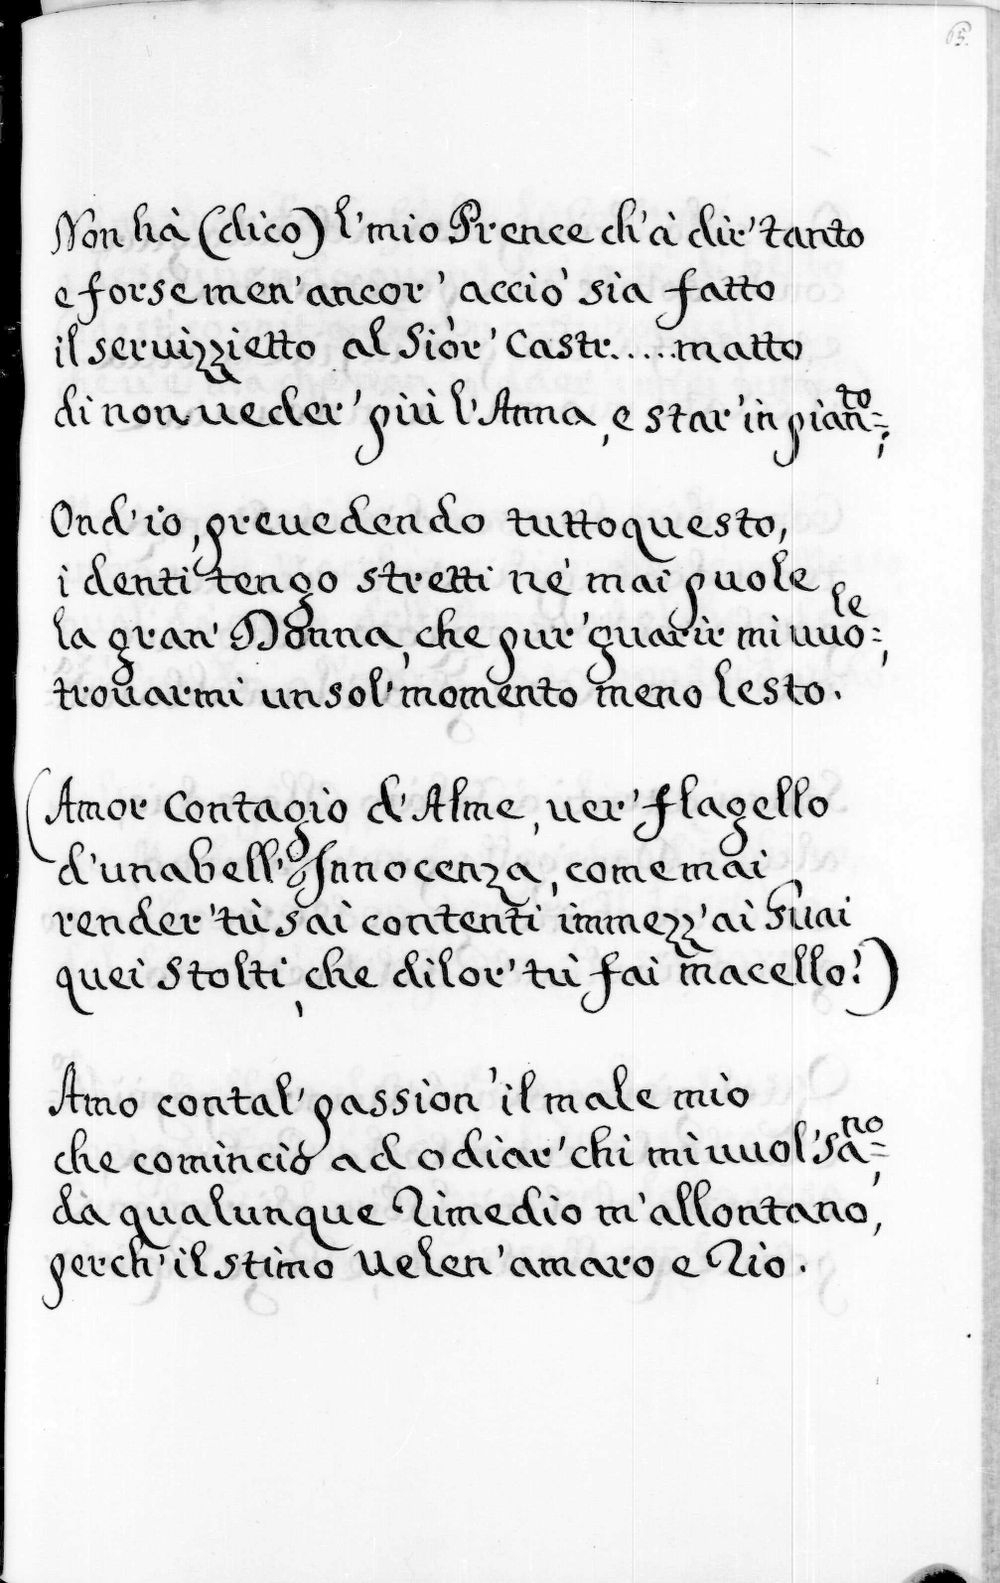 65.
Non hà (dico) l'mio Prence ch'à dir' tanto
e forse men' ancor', acciò sia fatto
il seruizzietto al Siòr' Castr.....matto
di non ueder' più l'Anna, e star' in pian=to;
Ond'io, preuedendo tutto questo,
i denti tengo stretti nè mai puole
la gran' Donna, che pur' guarir mi uuo=le,
trouarmi un sol' momento meno lesto.
(Amor Contagio d'Alme, uer' flagello
d'una bell' Innocenza, come mai
render' tù sai contenti immezz' ai Guai
quei Stolti, che di lor' tù fai macello?)
Amo con tal' passion' il male mio
che comincio ad odiar' chi mi uuol' sa=no,
dà qualunque Rimedio m'allontano,
perch' il stimo Uelen' amaro e Rio.